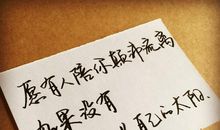 愿有人陪你颠沛流离
如果没有
自己的太阳.